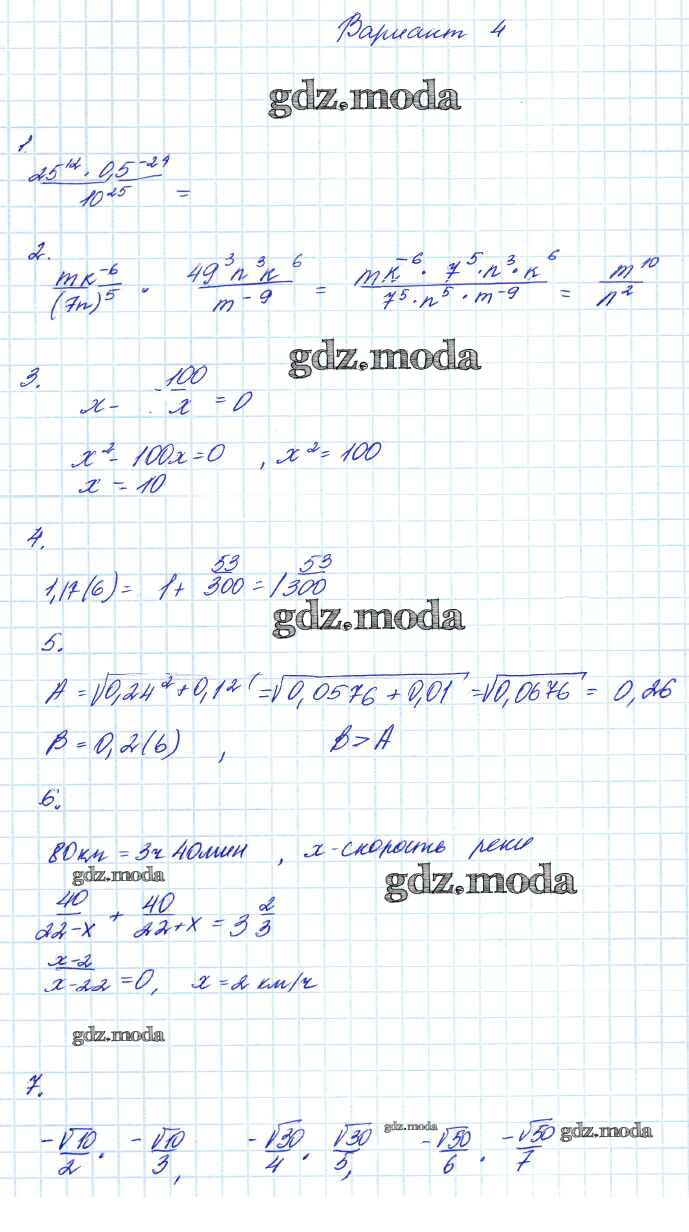 Вариант 4
gdz.moda
1.
25^12 · 0,5^-24 / 10^25 =
2.
mk^-6 / (7n)^5 · 49^3 n^3 k^6 / m^-9 = mk^-6 · 7^5 · n^3 · k^6 / 7^5 · n^5 · m^-9 = m^10 / n^2
gdz.moda
3.
x - 100/x = 0
x^2 - 100x = 0 , x^2 = 100
x = 10
4.
1,17(6) = 1 + 53/300 = 1 53/300
gdz.moda
5.
A = √0,24^2 + 0,1^2 = √0,0576 + 0,01 = √0,0676 = 0,26
B = 0,2(6) , B > A
6.
80км = 3ч 40мин , x - скорость реки
gdz.moda
gdz.moda
40/22-x + 40/22+x = 3 2/3
x-2/x-22 = 0, x = 2 км/ч
gdz.moda
7.
gdz.moda
gdz.moda
-√10/2 · -√10/3, -√30/4 · √30/5, -√50/6 · -√50/7